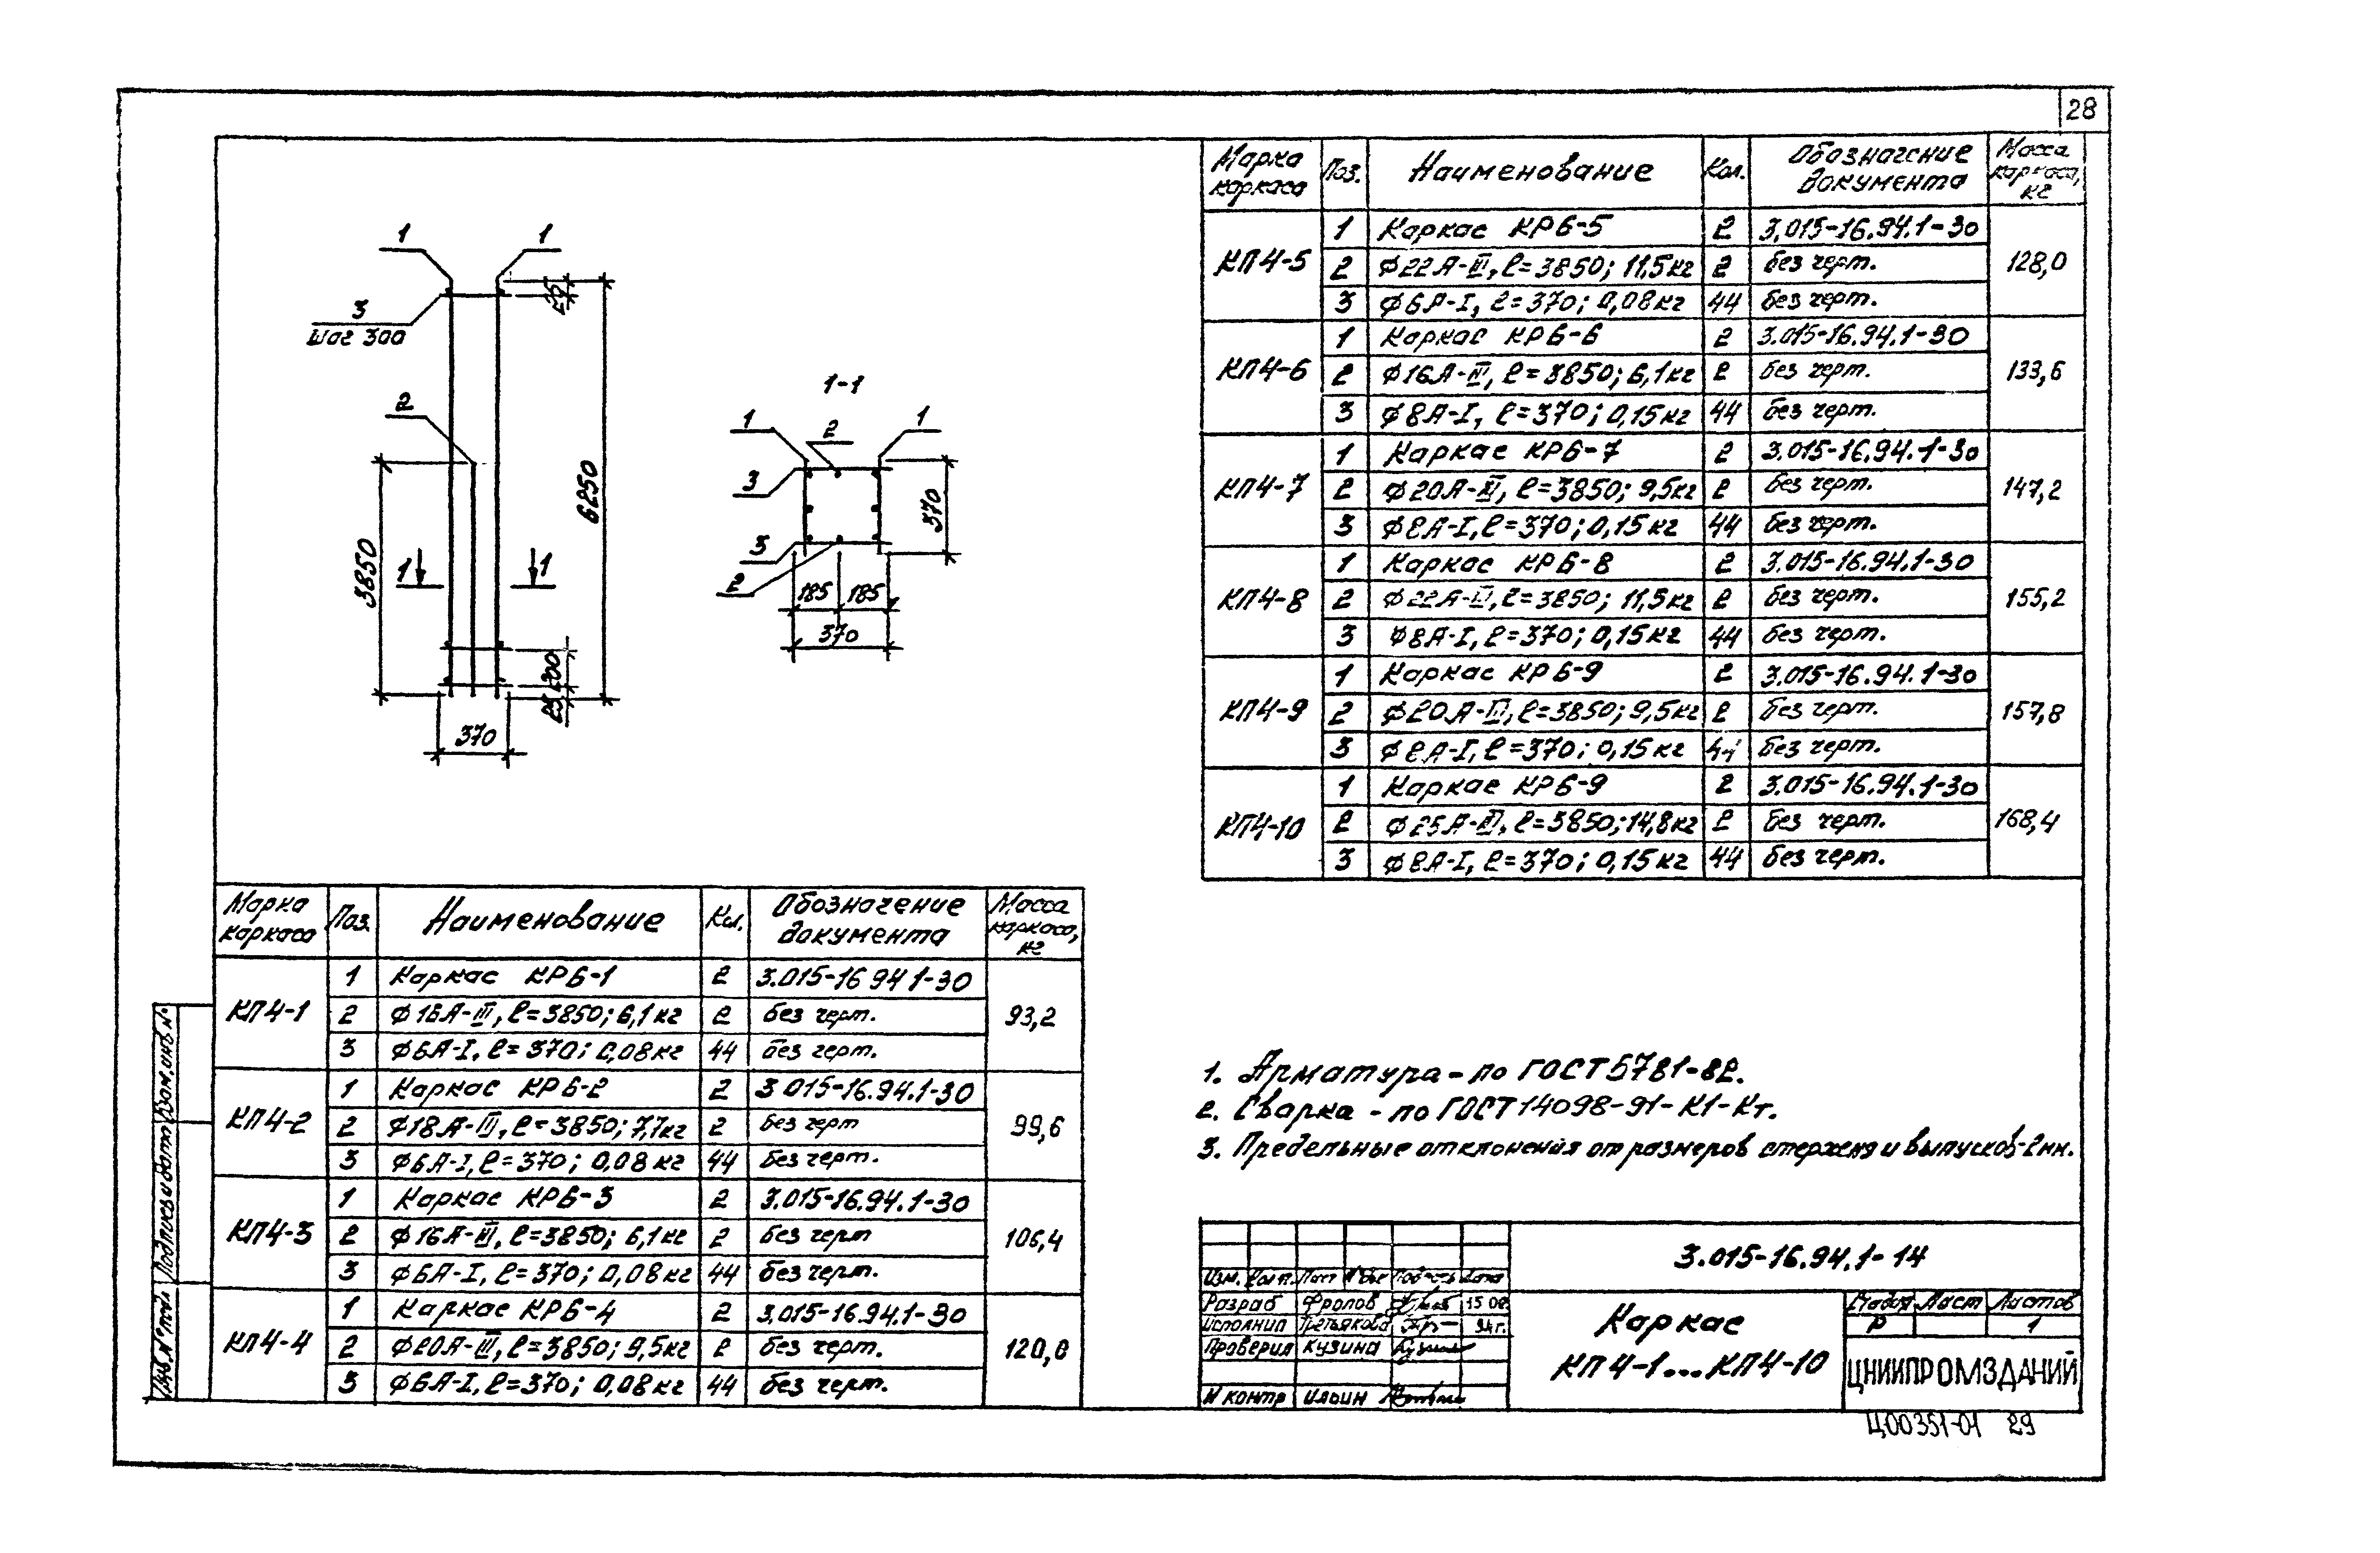 28
1
1
3
шаг 300
2
25
6250
3850
1
1
200
25
370
1-1
1
2
1
3
3
2
370
185
185
370
Марка каркаса
Поз.
Наименование
Кол.
Обозначение документа
Масса каркаса, кг
КП4-5
128,0
1 Каркас КР6-5 2 3.015-16.94.1-30
2 ϕ22А-III, ℓ=3850; 11,5кг 2 без черт.
3 ϕ6А-I, ℓ=370; 0,08кг 44 без черт.
КП4-6
133,6
1 Каркас КР6-6 2 3.015-16.94.1-30
2 ϕ16А-III, ℓ=3850; 6,1кг 2 без черт.
3 ϕ8А-I, ℓ=370; 0,15кг 44 без черт.
КП4-7
147,2
1 Каркас КР6-7 2 3.015-16.94.1-30
2 ϕ20А-III, ℓ=3850; 9,5кг 2 без черт.
3 ϕ8А-I, ℓ=370; 0,15кг 44 без черт.
КП4-8
155,2
1 Каркас КР6-8 2 3.015-16.94.1-30
2 ϕ22А-III, ℓ=3850; 11,5кг 2 без черт.
3 ϕ8А-I, ℓ=370; 0,15кг 44 без черт.
КП4-9
157,8
1 Каркас КР6-9 2 3.015-16.94.1-30
2 ϕ20А-III, ℓ=3850; 9,5кг 2 без черт.
3 ϕ8А-I, ℓ=370; 0,15кг 44 без черт.
КП4-10
168,4
1 Каркас КР6-9 2 3.015-16.94.1-30
2 ϕ25А-III, ℓ=3850; 14,8кг 2 без черт.
3 ϕ8А-I, ℓ=370; 0,15кг 44 без черт.
Марка каркаса
Поз.
Наименование
Кол.
Обозначение документа
Масса каркаса, кг
КП4-1
93,2
1 Каркас КР6-1 2 3.015-16 94 1-30
2 ϕ16А-III, ℓ=3850; 6,1кг 2 без черт.
3 ϕ6А-I, ℓ=370; 0,08кг 44 без черт.
КП4-2
99,6
1 Каркас КР6-2 2 3 015-16.94.1-30
2 ϕ18А-III, ℓ=3850; 7,7кг 2 без черт
3 ϕ6А-I, ℓ=370; 0,08кг 44 без черт.
КП4-3
106,4
1 Каркас КР6-3 2 3.015-16.94.1-30
2 ϕ16А-III, ℓ=3850; 6,1кг 2 без черт
3 ϕ6А-I, ℓ=370; 0,08кг 44 без черт.
КП4-4
120,0
1 Каркас КР6-4 2 3.015-16.94.1-30
2 ϕ20А-III, ℓ=3850; 9,5кг 2 без черт.
3 ϕ6А-I, ℓ=370; 0,08кг 44 без черт.
1. Арматура - по ГОСТ 5781-82.
2. Сварка - по ГОСТ 14098-91-К1-Кт.
3. Предельные отклонения от размеров стержня и выпусков-2мм.
Взам.инв.№
Подпись и дата
Инв.№ подл
3.015-16.94.1-14
Изм. Кол.уч. Лист №док Подпись Дата
Разраб Фролов 15 08
Исполнил Третьякова 94г.
Проверил Кузина
Н контр Ильин
Каркас
КП4-1...КП4-10
Стадия Лист Листов
Р 1
ЦНИИПРОМЗДАНИЙ
Ц00351-01 29